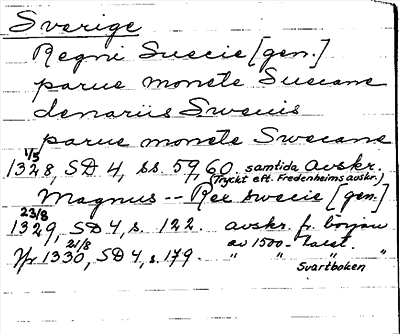 Sverige
Regni Suecie [gen.]
parue monete Suecane
denariis Swecis
parue monete Swecane
1/5
1328, SD 4, ss. 59, 60. samtida Avskr.
(Tryckt eft. Fredenheims avskr.)
Magnus -- Rex Swecie [gen.]
23/8
1329, SD 4, s. 122. avskr. fr. början
21/8 av 1500-talet.
Yfr 1330, SD 4, s. 179. " " " "
Svartboken